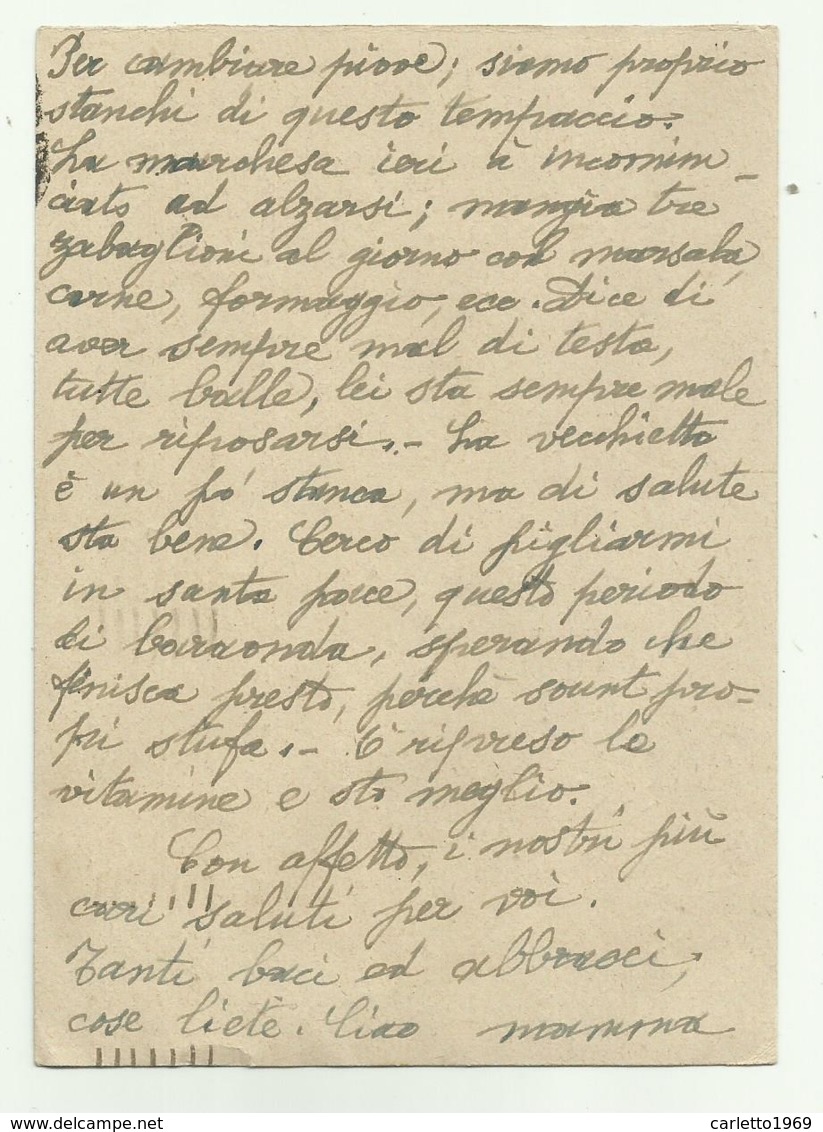 Per cambiare piove; siamo proprio
stanchi di questo tempaccio.
La marchesa ieri à incomin-
ciato ad alzarsi; mangia tre
zabaglioni al giorno con marsala,
carne, formaggio, ecc. Dice di
aver sempre mal di testa,
tutte balle, lei sta sempre male
per riposarsi. - La vecchietta
è un pò stanca, ma di salute
sta bene. Cerco di pigliarmi
in santa pace, questo periodo
di baraonda, sperando che
finisca presto, perchè sount pro-
pri stufa. - O' ripreso le
vitamine e sto meglio.
Con affetto, i nostri più
cari saluti per voi.
Tanti baci ed abbracci,
cose liete. Ciao mamma
www.delcampe.net
carletto1969